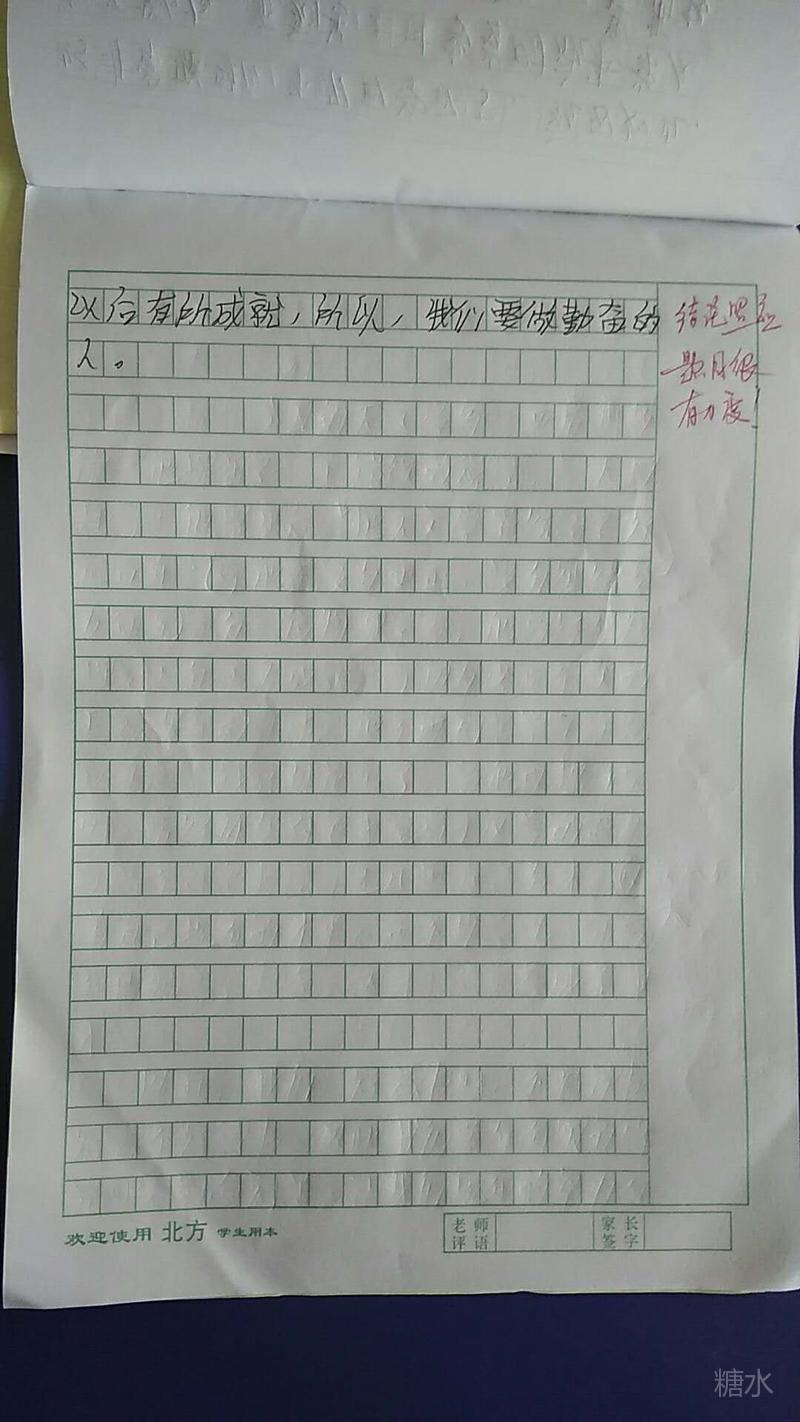 以后有所成就，所以，我们要做勤奋的
人。
结尾照应
题目很
有力度！
欢迎使用 北方 学生用本
老师
评语
家长
签字
糖水